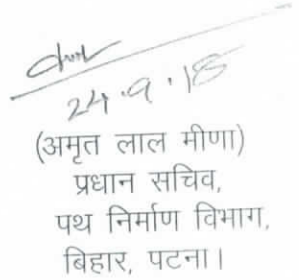 24.9.18
(अमृत लाल मीणा)
प्रधान सचिव,
पथ निर्माण विभाग,
बिहार, पटना।